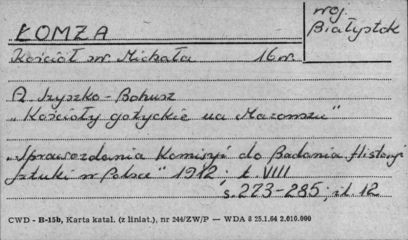 woj.
ŁOMŻA Białystok
Kościół św. Michała 16 w.
A. Szyszko-Bohusz
„Kościoły gotyckie na Mazowszu"
„Sprawozdania Komisyi do Badania Historyi
Sztuki w Polsce" 1912; t. VIII
s. 273-285; il. 12
CWD - B-15b, Karta katal. (z liniat.), nr 244/ZW/P — WDA 8 25.1.64 2.010.000